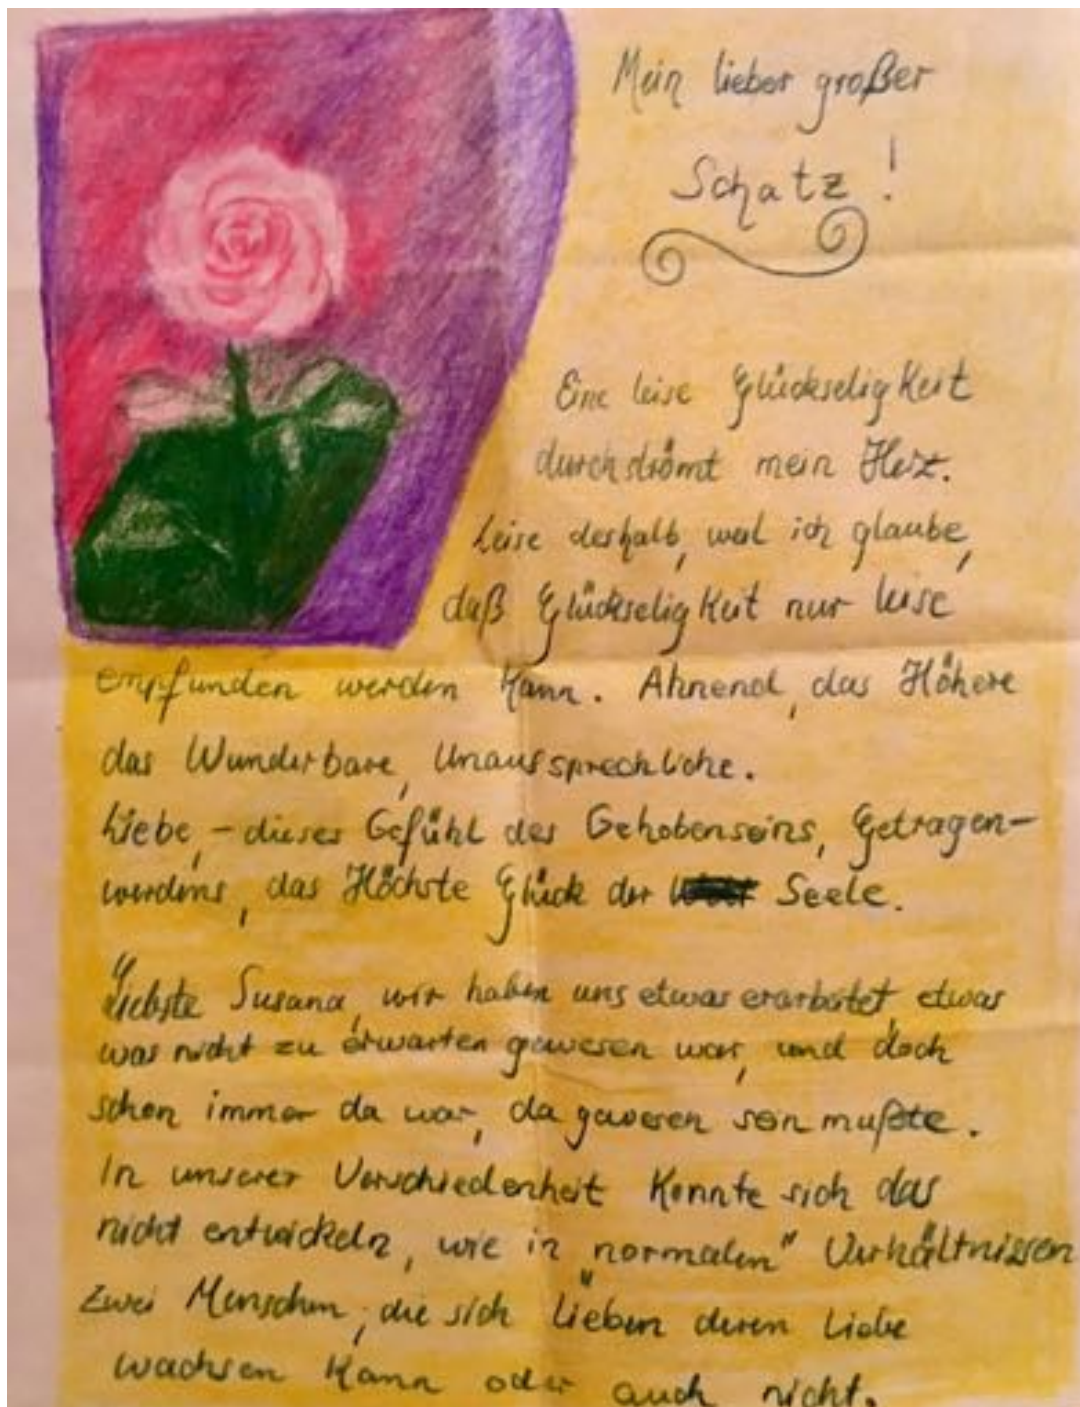 Mein lieber großer
Schatz!
Eine leise Glückseligkeit
durchströmt mein Herz.
Leise deshalb, weil ich glaube,
daß Glückseligkeit nur leise
empfunden werden kann. Ahnend, das Höhere
das Wunderbare, Unaussprechliche.
Liebe, - dieses Gefühl des Gehobenseins, Getragen-
werdens, das Höchste Glück der Seele.
Liebste Susana, wir haben uns etwas erarbeitet, etwas
was nicht zu erwarten gewesen war, und doch
schon immer da war, da gewesen sein mußte.
In unserer Verschiedenheit konnte sich das
nicht entwickeln, wie in "normalen" Verhältnissen
zwei Menschen, die sich lieben deren Liebe
wachsen kann oder auch nicht.